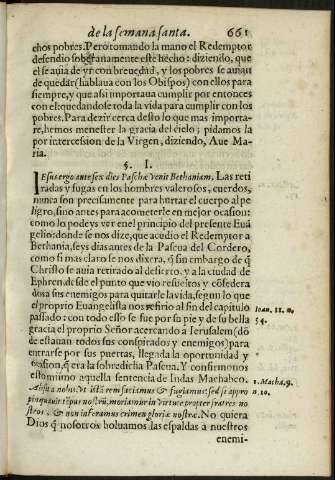 de la semana santa. 661
chos pobres. Pero tomando la mano el Redemptor
defendio soberanamente este hecho: diziendo, que
el se auia de yr con breuedad, y los pobres se auian
de quedar (hablaua con los Obispos) con ellos para
siempre, y que asi importaua cumplir por entonces
con el: quedandose toda la vida para cumplir con los
pobres. Para dezir cerca desto lo que mas importa-
re, hemos menester la gracia del cielo; pidamosla
por intercession de la Virgen, diziendo, Aue Ma-
ria.
§. I.
IEsus ergo ante sex dies Paschæ venit Bethaniam. Las reti
radas y fugas en los hombres valerosos, cuerdos,
nunca son precisamente para hurtar el cuerpo al pe
ligro, sino antes para acometerle en mejor ocasion:
como lo podeys ver en el principio del presente Euã
gelio: donde se nos dize, que acudio el Redemptor a
Bethania, seys dias antes de la Pascua del Cordero,
como si mas claro se nos dixera, q̃ sin embargo de q̃
Christo se auia retirado al desierto, y a la ciudad de
Ephren, desde el punto que vio resueltos y cõfedera
dos a sus enemigos para quitarle la vida, segun lo que
el proprio Euangelista nos refirio al fin del capitulo
passado: con todo ello se fue por su pie y de su bella
gracia el proprio Señor acercando a Ierusalem (dõ
de estauan todos sus conspirados y enemigos) para
entrarse por sus puertas, llegada la oportunidad y
ocasion, q̃ era la sobredicha Pascua. Y confirmonos
esto mismo aquella sentencia de Iudas Machabeo.
Absit a nobis vt istã rem faciamus & fugiamus: sed si appro
pinquauit tẽpus nostrũ, moriamur in virtute propter fratres no
stros, & non inferamus crimen gloriæ nostræ. No quiera
Dios q̃ nosotros boluamos las espaldas a nuestros
enemi-
Ioan. 11. n.
54.
1. Macha. 9.
n. 10.